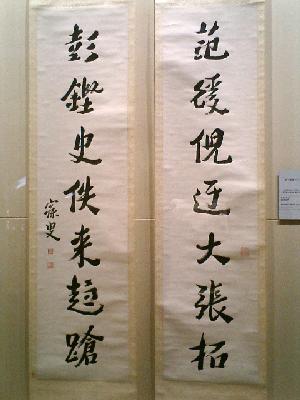 范緩倪迂大張拓
彭鏗史佚来趨蹌
寐叟